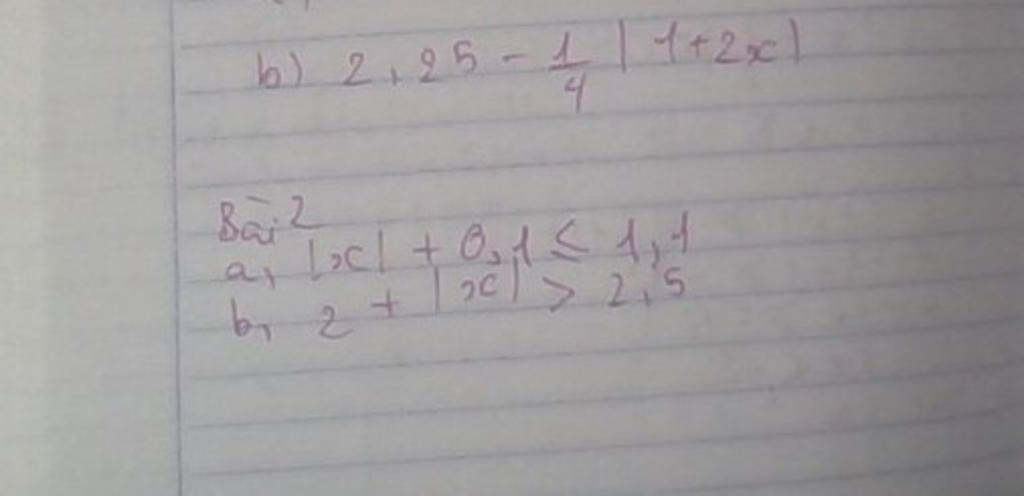 b) 2,25 - 1/4 |1+2x|
Bài 2
a, |x| + 0,1 ≤ 1,1
b, 2 + |x| > 2,5